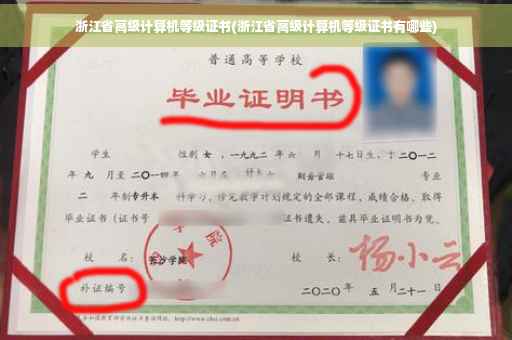 浙江省高级计算机等级证书(浙江省高级计算机等级证书有哪些)
普通高等学校
毕业证明书
学生 性别 女，一九九二年 六 月 十七日生，于 二〇一二
年 九 月至 二〇一四 年 六月在 财务管理 专业
二 年制 专升本 科学习，修完教学计划规定的全部课程，成绩合格，取得
毕业证书（证书号 证书遗失，兹具毕业证明书为凭。
校 名： 长沙学院 校 长： 杨小云
补证编号
二〇二〇年 五 月二十一日
http://www.chsi.com.cn